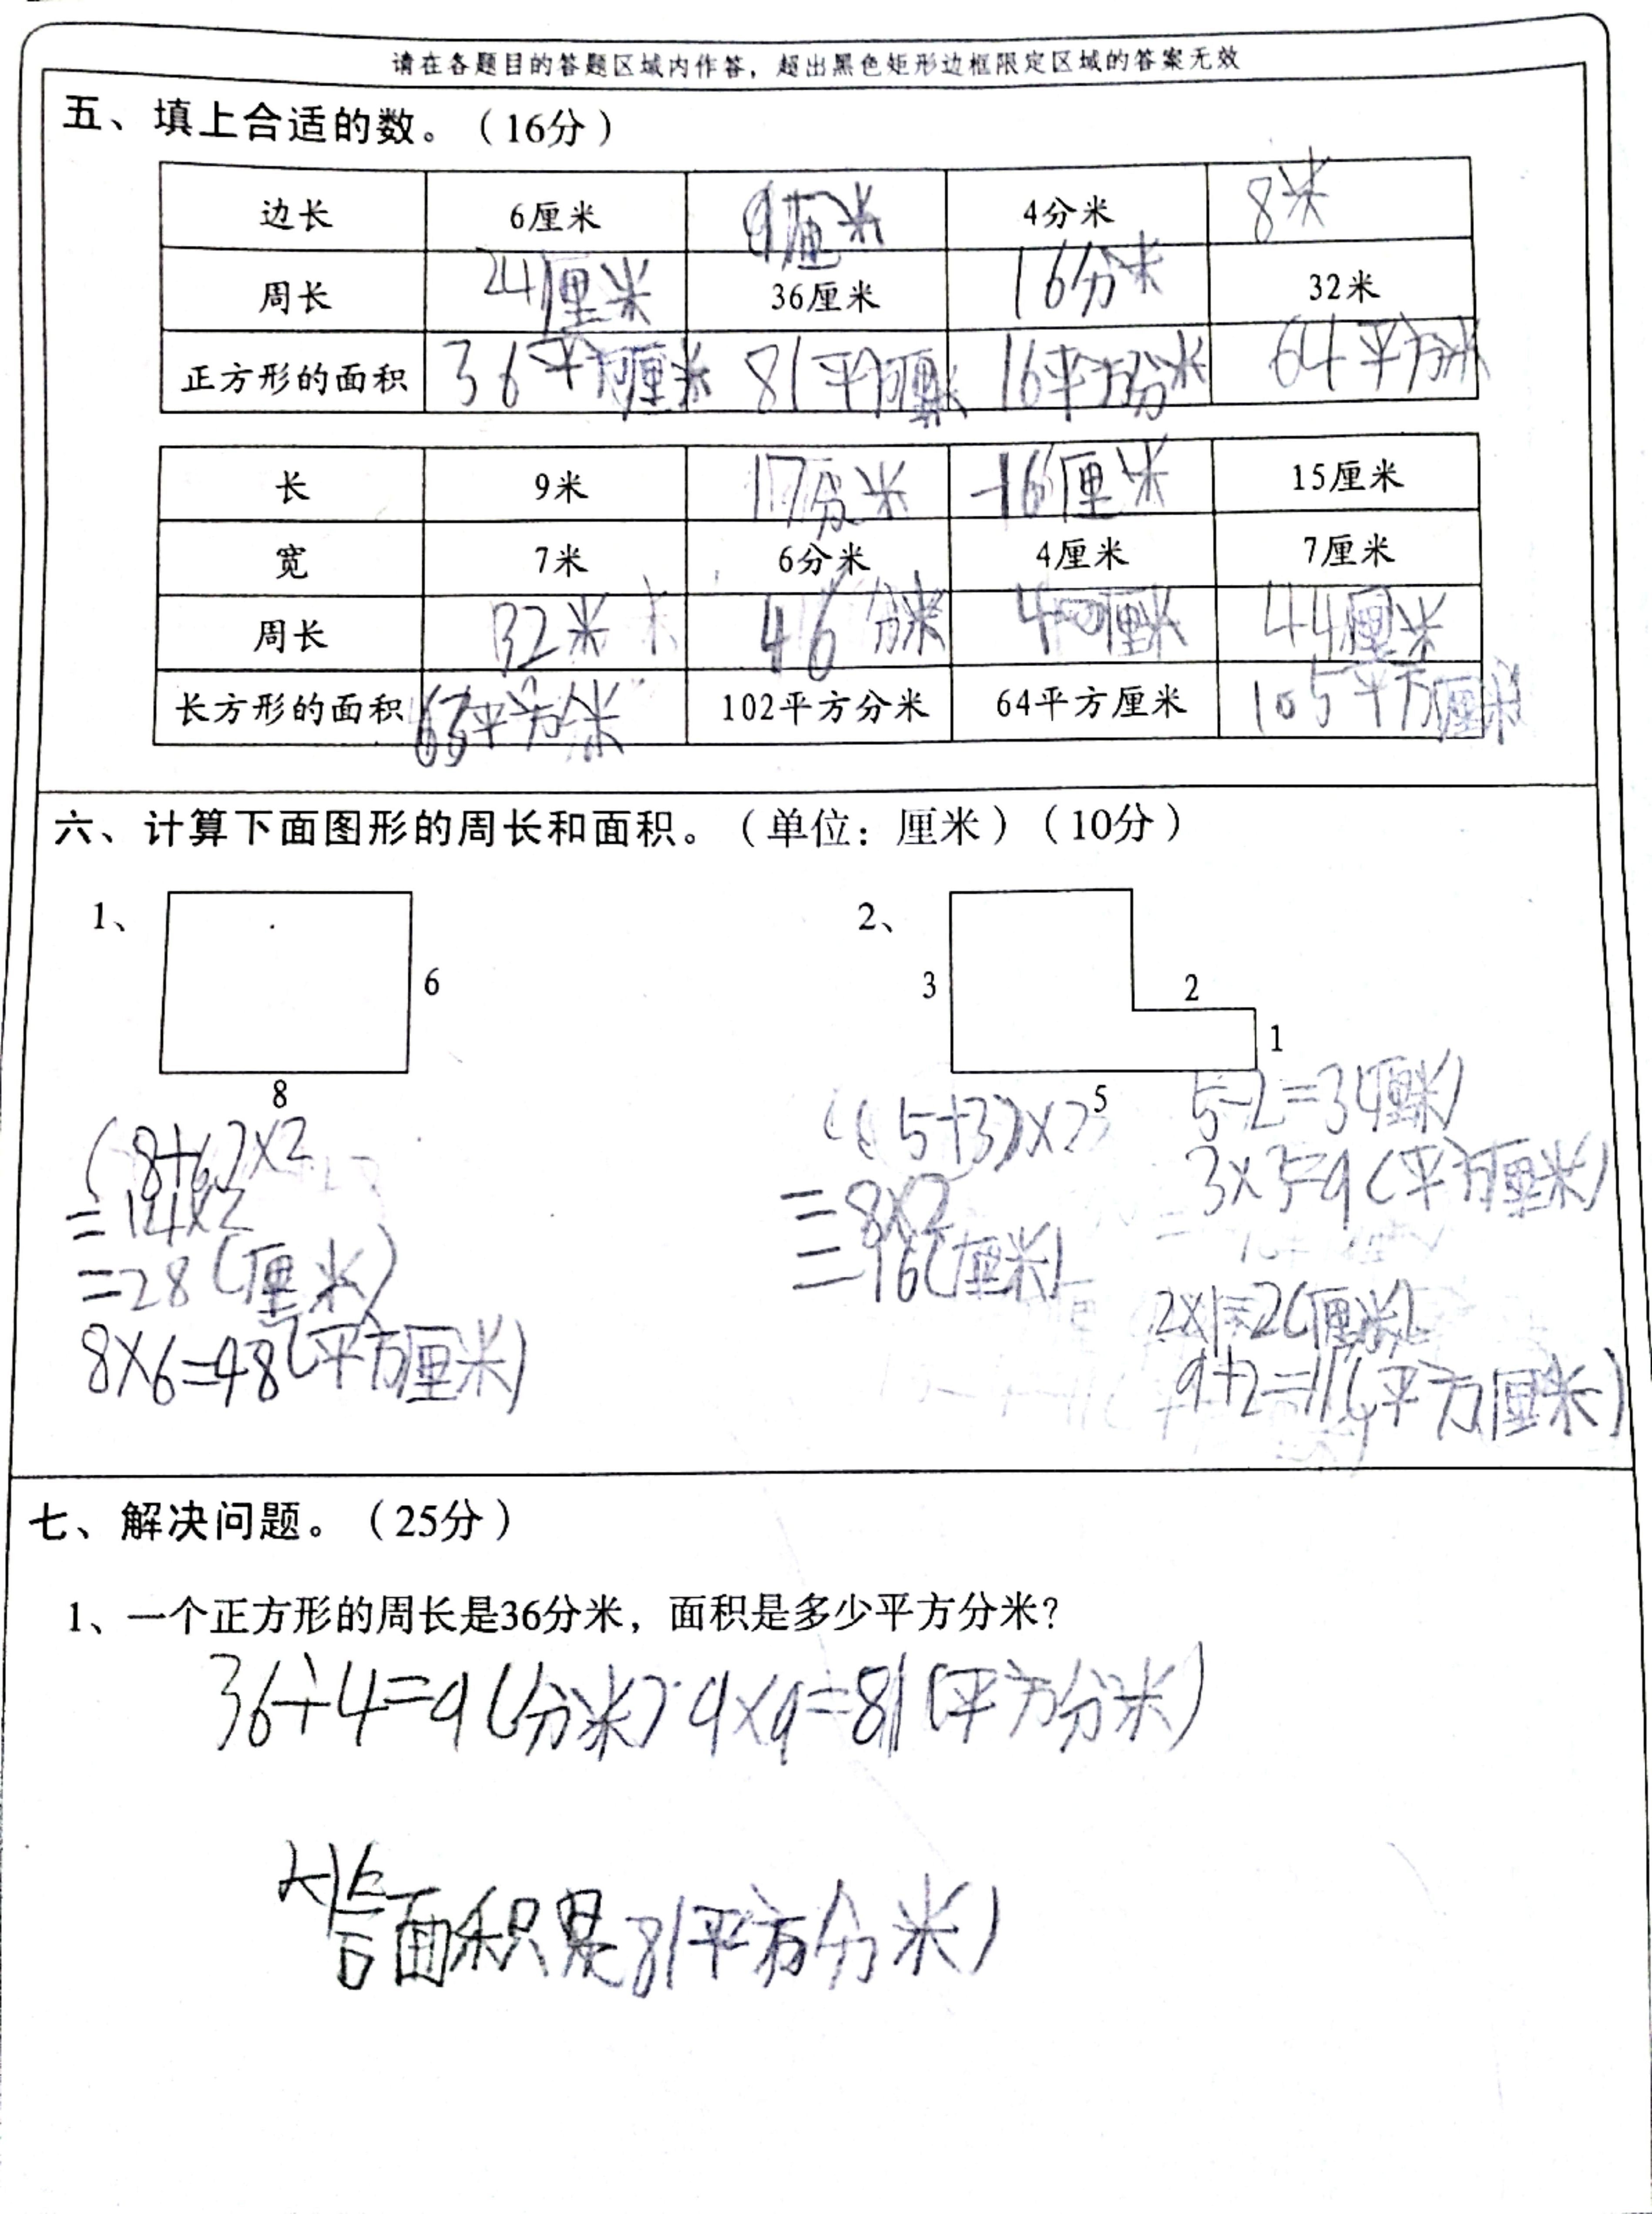 请在各题目的答题区域内作答，超出黑色矩形边框限定区域的答案无效
五、填上合适的数。（16分）
边长 6厘米 9厘米 4分米 8米
周长 24厘米 36厘米 16分米 32米
正方形的面积 36平方厘米 81平方厘米 16平方分米 64平方米
长 9米 17分米 16厘米 15厘米
宽 7米 6分米 4厘米 7厘米
周长 32米 46分米 40厘米 44厘米
长方形的面积 63平方米 102平方分米 64平方厘米 105平方厘米
六、计算下面图形的周长和面积。（单位：厘米）（10分）
1、 6
8
(8+6)×2
=14×2
=28(厘米)
8×6=48(平方厘米)
2、 3 2 1
5
((5+3)×2
=8×2
=16(厘米)
5-2=3(厘米)
3×3=9(平方厘米)
2×1=2(厘米)
9+2=11(平方厘米)
七、解决问题。（25分）
1、一个正方形的周长是36分米，面积是多少平方分米？
36÷4=9(分米) 9×9=81(平方分米)
答面积是81平方分米)